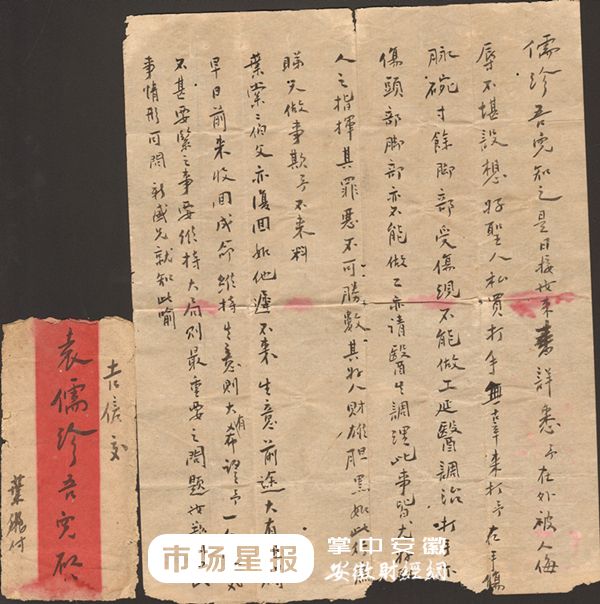 儒珍吾兒知之是日接女來書詳悉予在外被人侮
辱不堪設想好聖人私買打手無辜來打予在手傷
脉碗寸餘脚部受傷現不能做工延醫調治打
傷頭部脚部亦不能做工亦請醫生調理此事皆
人之指揮其罪惡不可勝數其奸人財雄胆黑如此
睇欠做事欺予不来料
葉棠之伯父亦復回如他遲不来生意前途大有
早日前来收回成命維持生意則大有希望予一
不甚要緊之事要維持大局則最重要之問題
事情形可問 就知此喻
吉信交
袁儒珍吾兒啟
葉 付
市场星报
掌中安徽
安徽财经網